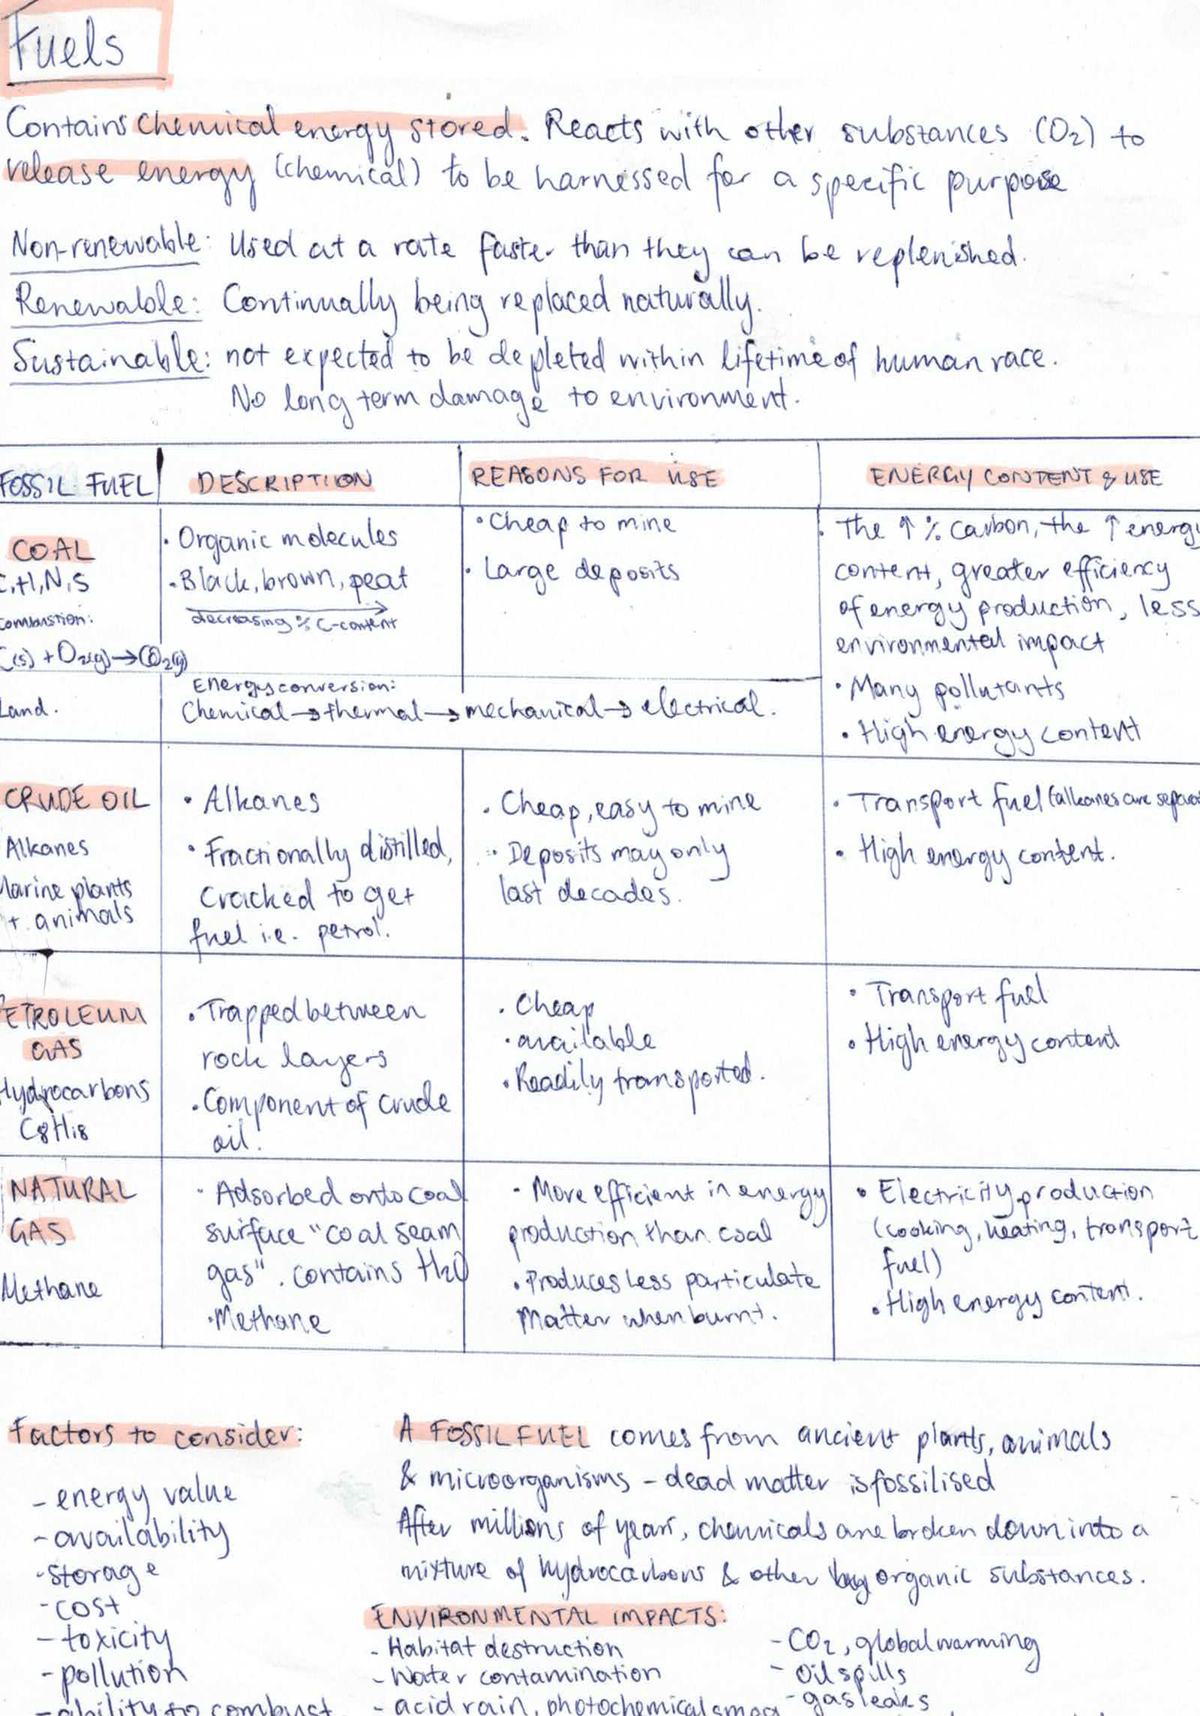 Fuels
Contains chemical energy stored. Reacts with other substances (O2) to
release energy (chemical) to be harnessed for a specific purpose
Non-renewable: Used at a rate faster than they can be replenished.
Renewable: Continually being replaced naturally.
Sustainable: not expected to be depleted within lifetime of human race.
No long term damage to environment.
FOSSIL FUEL
DESCRIPTION
REASONS FOR USE
ENERGY CONTENT & USE
COAL
C,H,N,S
combustion:
C(s) + O2(g) → CO2(g)
Land.
· Organic molecules
· Black, brown, peat
decreasing % C-content
· Cheap to mine
· Large deposits
Energy conversion:
Chemical → thermal → mechanical → electrical.
· The ↑ % Carbon, the ↑ energy
content, greater efficiency
of energy production, less
environmental impact
· Many pollutants
· High energy content
CRUDE OIL
Alkanes
Marine plants
+ animals
· Alkanes
· Fractionally distilled,
Cracked to get
fuel i.e. petrol.
· Cheap, easy to mine
· Deposits may only
last decades.
· Transport fuel (alkanes are separat
· High energy content.
PETROLEUM
GAS
Hydrocarbons
C8H18
· Trapped between
rock layers
· Component of crude
oil.
· Cheap
· available
· Readily transported.
· Transport fuel
· High energy content
NATURAL
GAS
Methane
· Adsorbed onto coal
surface "coal seam
gas". contains H2O
· Methane
· More efficient in energy
production than coal
· Produces less particulate
Matter when burnt.
· Electricity production
(cooking, heating, transport
fuel)
· High energy content.
Factors to consider:
- energy value
- availability
- storage
- cost
- toxicity
- pollution
- ability to combust
A FOSSIL FUEL comes from ancient plants, animals
& microorganisms - dead matter is fossilised
After millions of years, chemicals are broken down into a
mixture of hydrocarbons & other organic substances.
ENVIRONMENTAL IMPACTS:
- Habitat destruction
- Water contamination
- acid rain, photochemical smog
- CO2, global warming
- Oil spills
- gas leaks